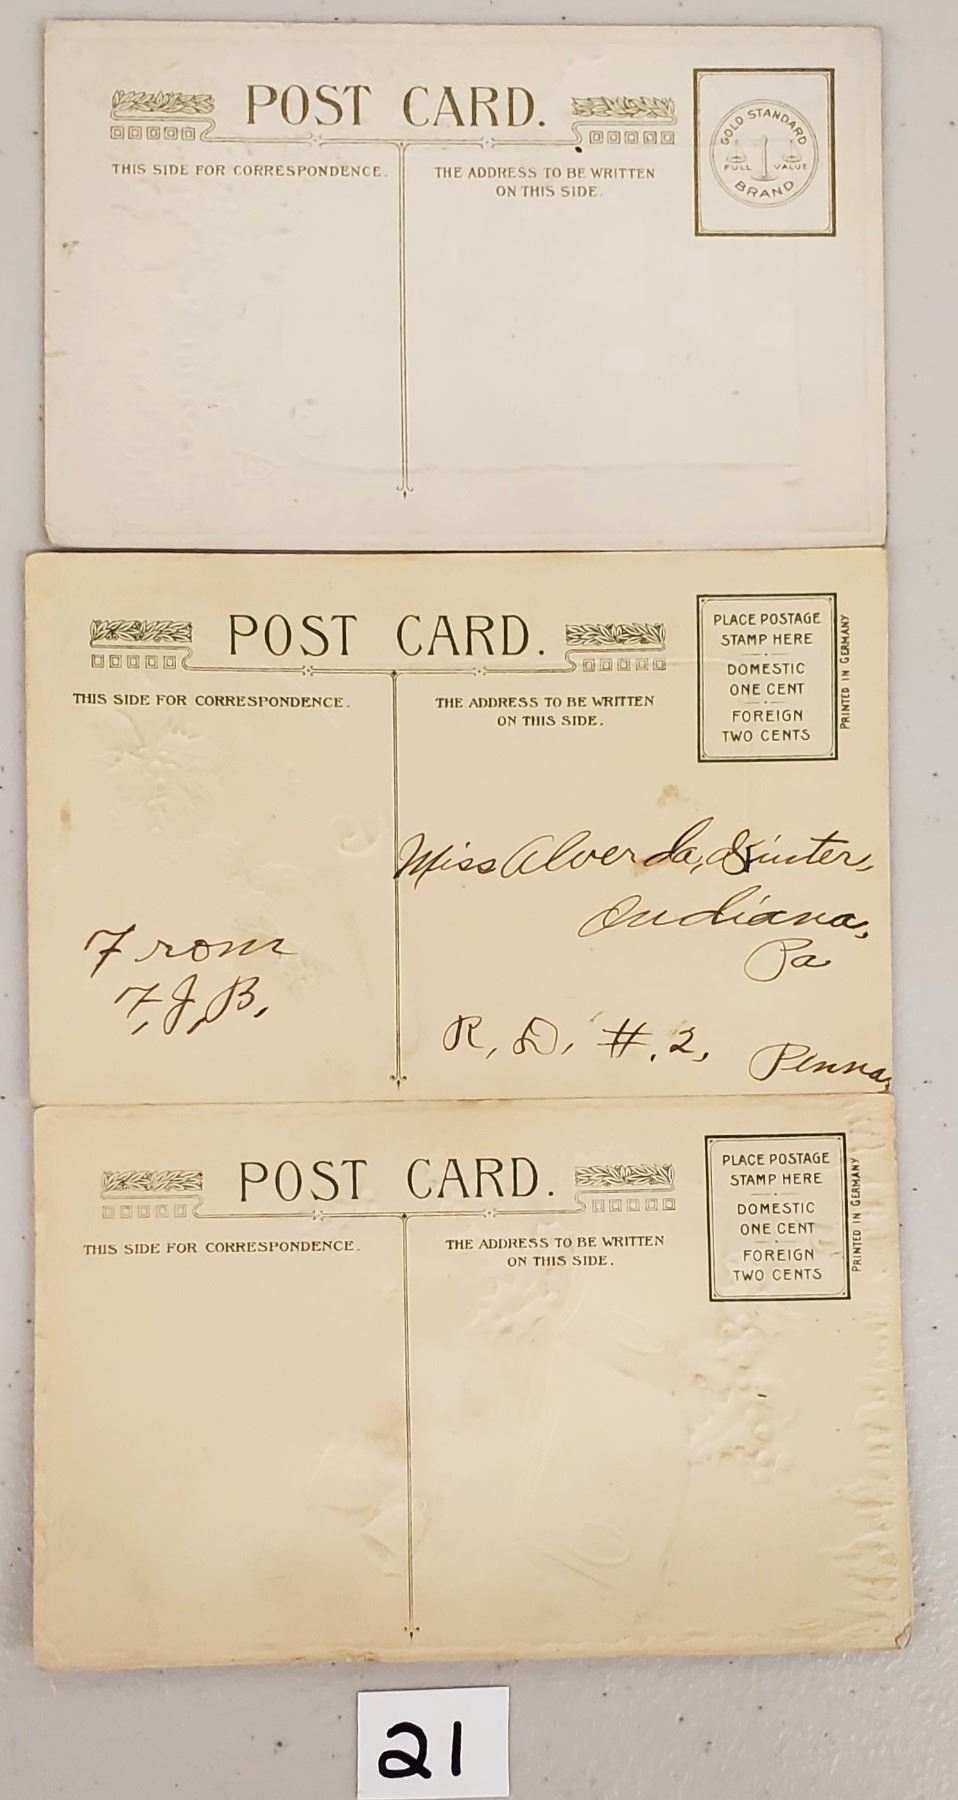 POST CARD.
THIS SIDE FOR CORRESPONDENCE.
THE ADDRESS TO BE WRITTEN
ON THIS SIDE.
GOLD STANDARD
FULL VALUE
BRAND
POST CARD.
THIS SIDE FOR CORRESPONDENCE.
THE ADDRESS TO BE WRITTEN
ON THIS SIDE.
PLACE POSTAGE
STAMP HERE
DOMESTIC
ONE CENT
FOREIGN
TWO CENTS
PRINTED IN GERMANY
From
F, J, B,
Miss Alverda,
Indiana,
Pa
R, D, #. 2,
Penna,
POST CARD.
THIS SIDE FOR CORRESPONDENCE.
THE ADDRESS TO BE WRITTEN
ON THIS SIDE.
PLACE POSTAGE
STAMP HERE
DOMESTIC
ONE CENT
FOREIGN
TWO CENTS
PRINTED IN GERMANY
21